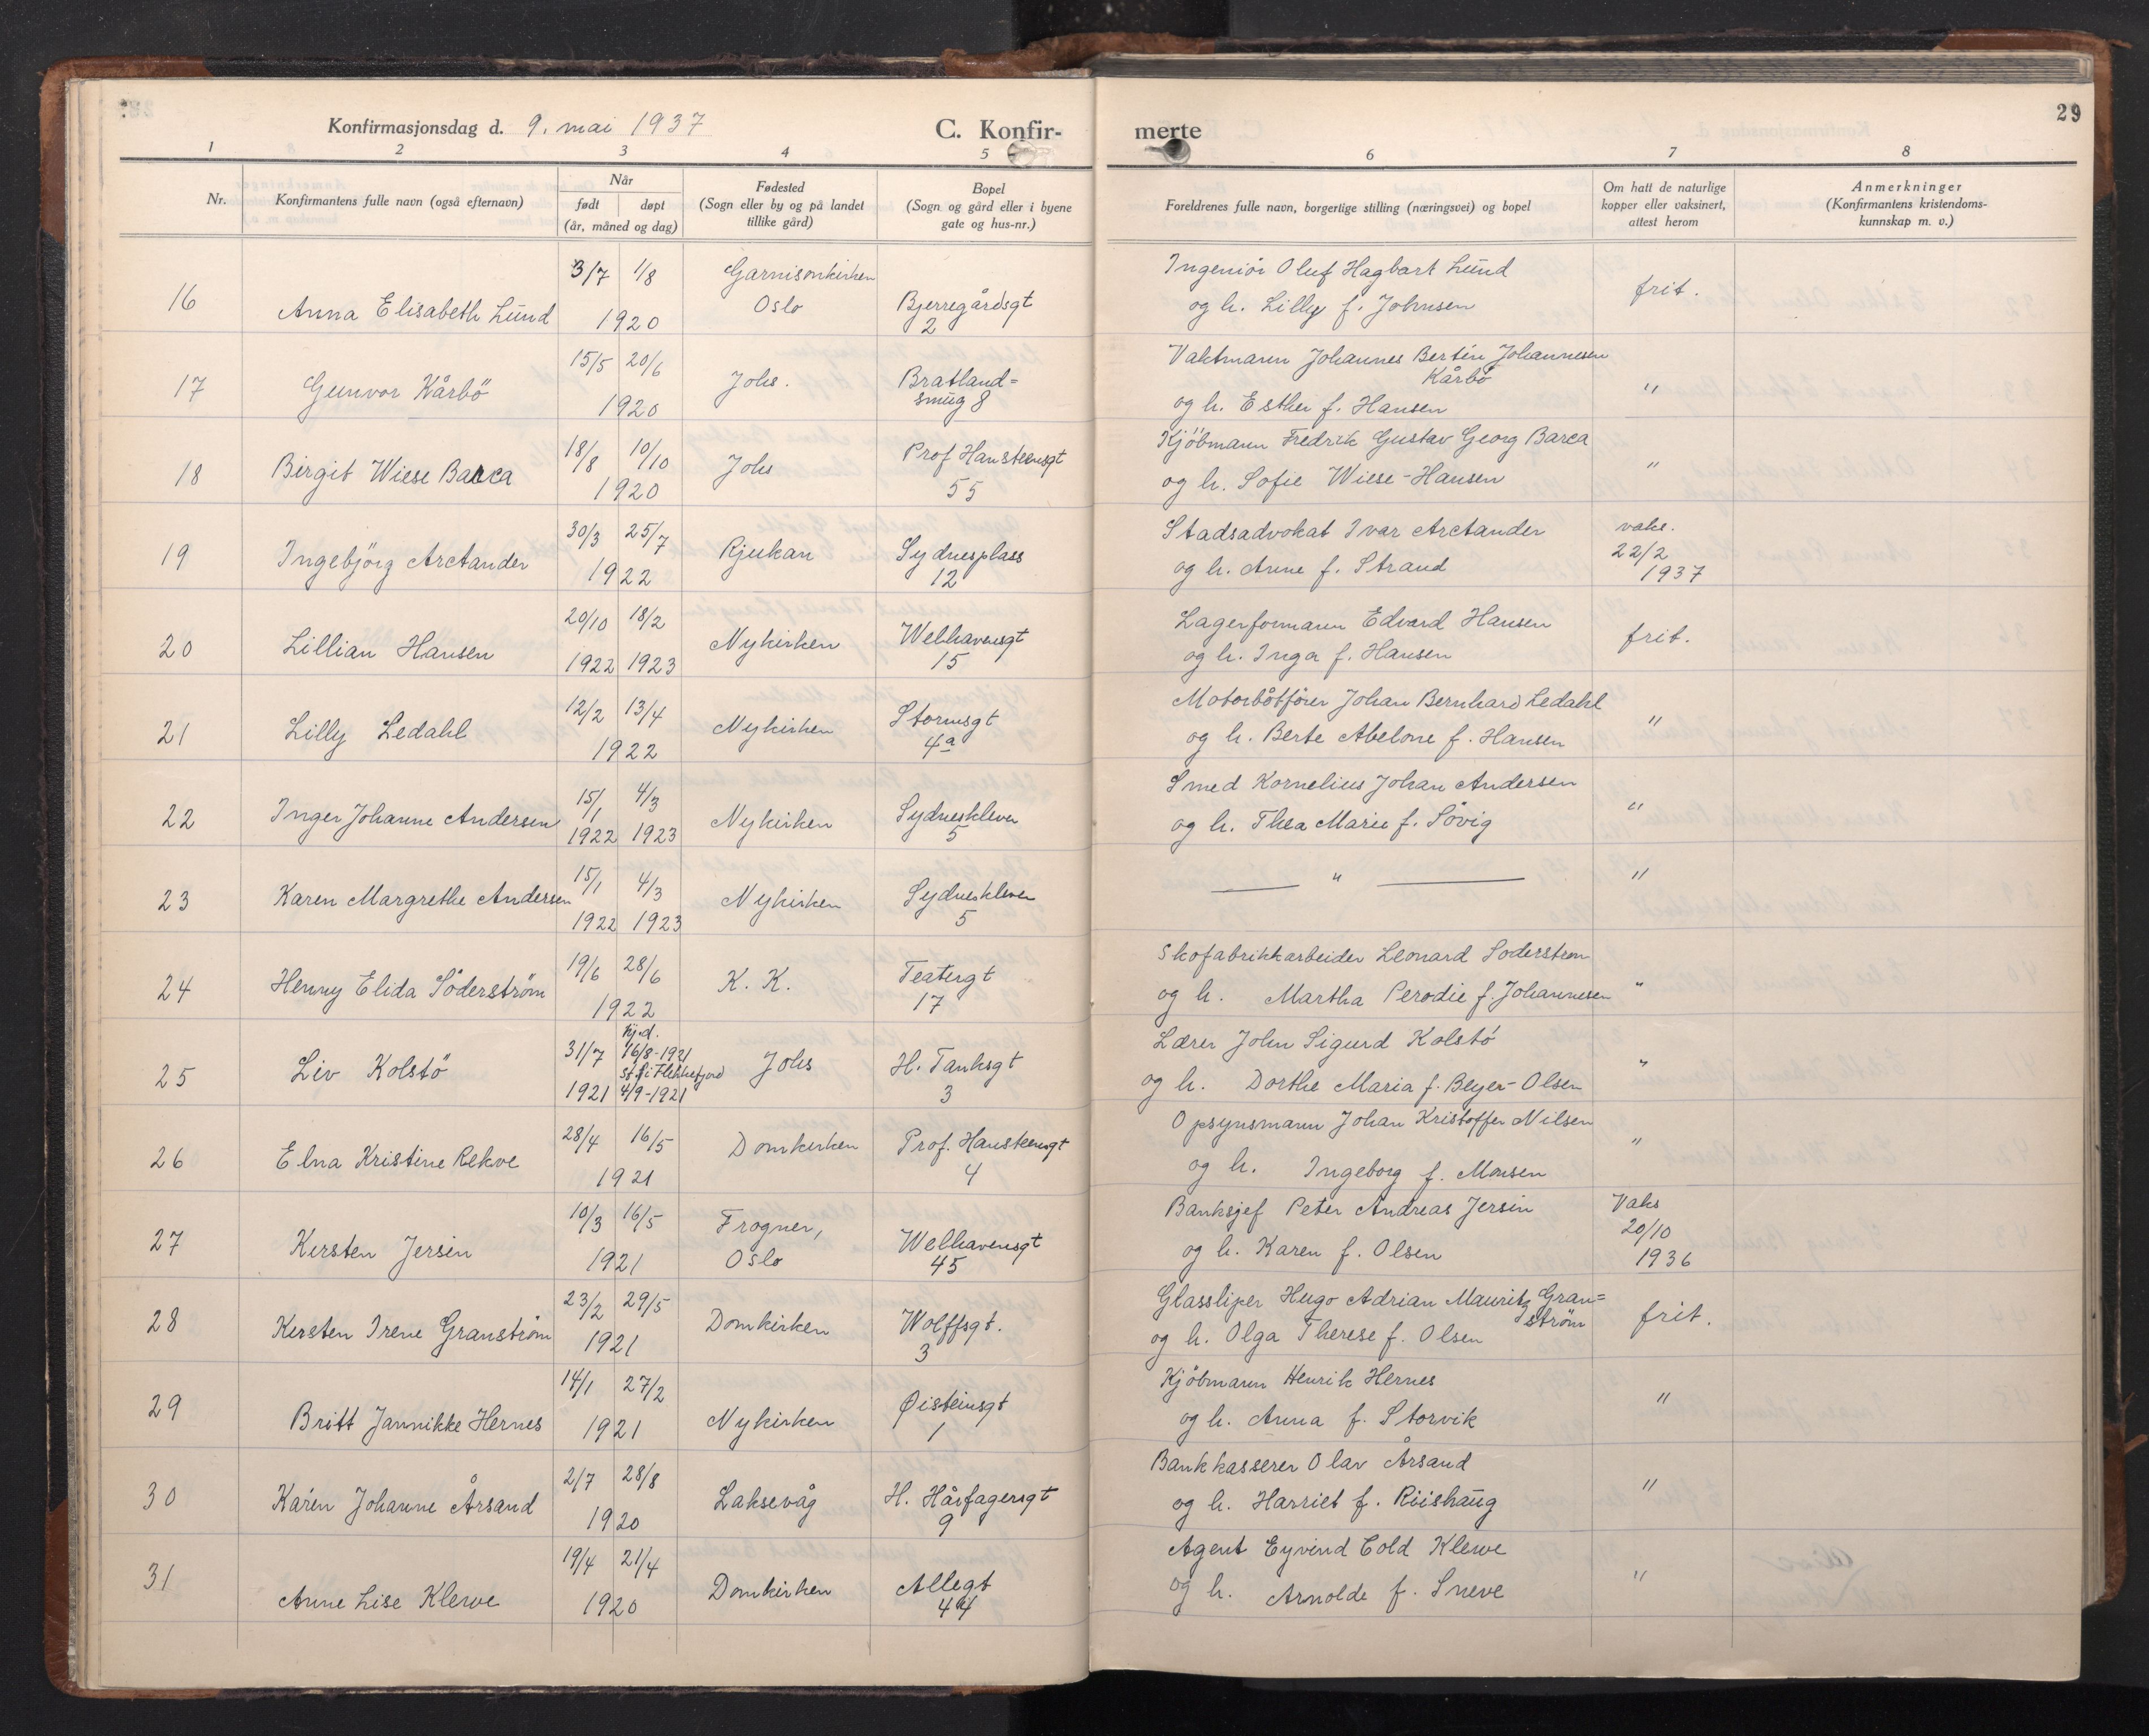 29
Konfirmasjonsdag d. 9. mai 1937
C. Konfir-
merte
1 2 3 4 5 6 7 8
Nr.
Konfirmantens fulle navn (også efternavn)
Når
født døpt
(år, måned og dag)
Fødested
(Sogn eller by og på landet
tillike gård)
Bopel
(Sogn og gård eller i byene
gate og hus-nr.)
Foreldrenes fulle navn, borgerlige stilling (næringsvei) og bopel
Om hatt de naturlige
kopper eller vaksinert,
attest herom
Anmerkninger
(Konfirmantens kristendoms-
kunnskap m. v.)
3/7 1/8 Garnisonkirken Ingeniör Oluf Hagbart Lund
16 Anna Elisabeth Lund 1920 Oslo Bjerregårdsgt og h. Lilly f. Johnsen frit.
2
15/5 20/6 Vaktmann Johannes Bertin Johannesen
17 Gunvor Kårbö Johs. Bratland= Kårbö "
1920 smug 8 og h. Esther f. Hansen
18/8 10/10 Prof Hansteensgt Kjöbmann Fredrik Gustav Georg Barca
18 Birgit Wiese Barca Johs "
1920 55 og h. Sofie Wiese-Hansen
30/3 25/7 Stadsadvokat Ivar Arctander vaks.
19 Ingebjörg Arctander Rjukan Sydnesplass 22/2
1922 12 og h. Anne f. Strand 1937
20/10 18/2 Lagerformann Edvard Hansen
20 Lillian Hansen Nykirken Welhavensgt frit.
1922 1923 15 og h. Inga f. Hansen
12/2 13/4 Motorbåtförer Johan Bernhard Ledahl
21 Lilly Ledahl Nykirken Stormsgt "
1922 4a og h. Berte Abelone f. Hansen
15/1 4/3 Smed Kornelius Johan Andersen
22 Inger Johanne Andersen Nykirken Sydneskleven "
1922 1923 5 og h. Thea Marie f. Sövig
15/1 4/3
23 Karen Margrethe Andersen Nykirken Sydneskleven — " — "
1922 1923 5
19/6 28/6 Skofabrikkarbeider Leonard Soderstrom
24 Henny Elida Söderström K. K. Teatergt
1922 17 og h. Martha Perodie f. Johannesen "
hj.d.
31/7 16/8-1921 Lærer John Sigurd Kolstö
25 Liv Kolstö st.f. i Flekkefjord Johs H. Tanksgt "
1921 4/9-1921 3 og h. Dorthe Maria f. Beyer-Olsen
28/4 16/5 Opsynsmann Johan Kristoffer Nilsen
26 Elna Kristine Rekve Domkirken Prof. Hansteensgt "
1921 4 og h. Ingeborg f. Monsen
10/3 16/5 Frogner, Banksjef Peter Andreas Jersin Vaks
27 Kirsten Jersin Welhavensgt 20/10
1921 Oslo 45 og h. Karen f. Olsen 1936
23/2 29/5 Glassliper Hugo Adrian Mauritz Gran=
28 Kirsten Irene Granström Domkirken Wolffsgt. ström frit.
1921 3 og h. Olga Therese f. Olsen
14/1 27/2 Kjöbmann Henrik Hernes
29 Britt Jannikke Hernes Nykirken Øisteinsgt "
1921 1 og h. Anna f. Storvik
2/7 28/8 Bankkasserer Olav Årsand
30 Karen Johanne Årsand Laksevåg H. Hårfagersgt "
1920 9 og h. Harriet f. Riishaug
19/4 21/4 Agent Eyvind Cold Klewe
31 Anne Lise Klewe Domkirken Allegt "
1920 44 og h. Arnolde f. Sneve